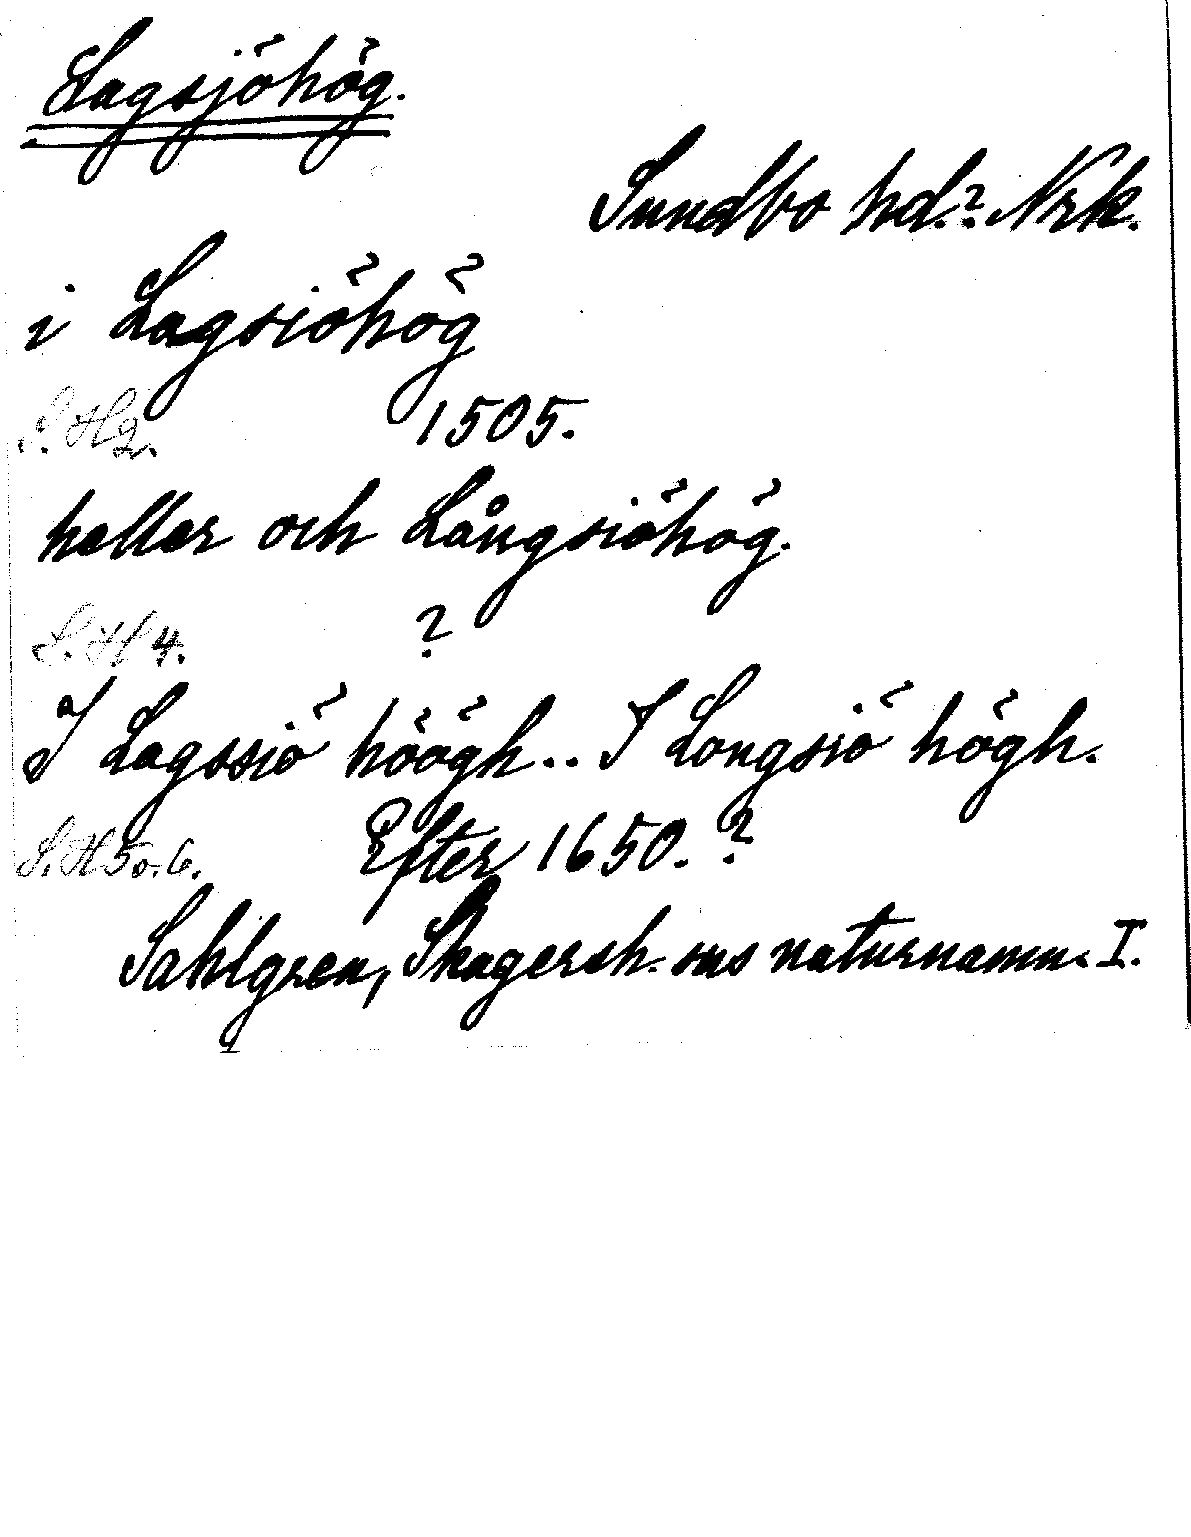 Lagsjöhög.
Sundbo hd.? Nrk.
i Lagsiöhög
S. H 2. 1505.
heller och Långsiöhög.
S. H 4. ?
I Lagssiö höögh.. I Longsiö högh.
S. H 5 o. 6. Efter 1650. ?
Sahlgren, Skagersh. sns naturnamn. I.